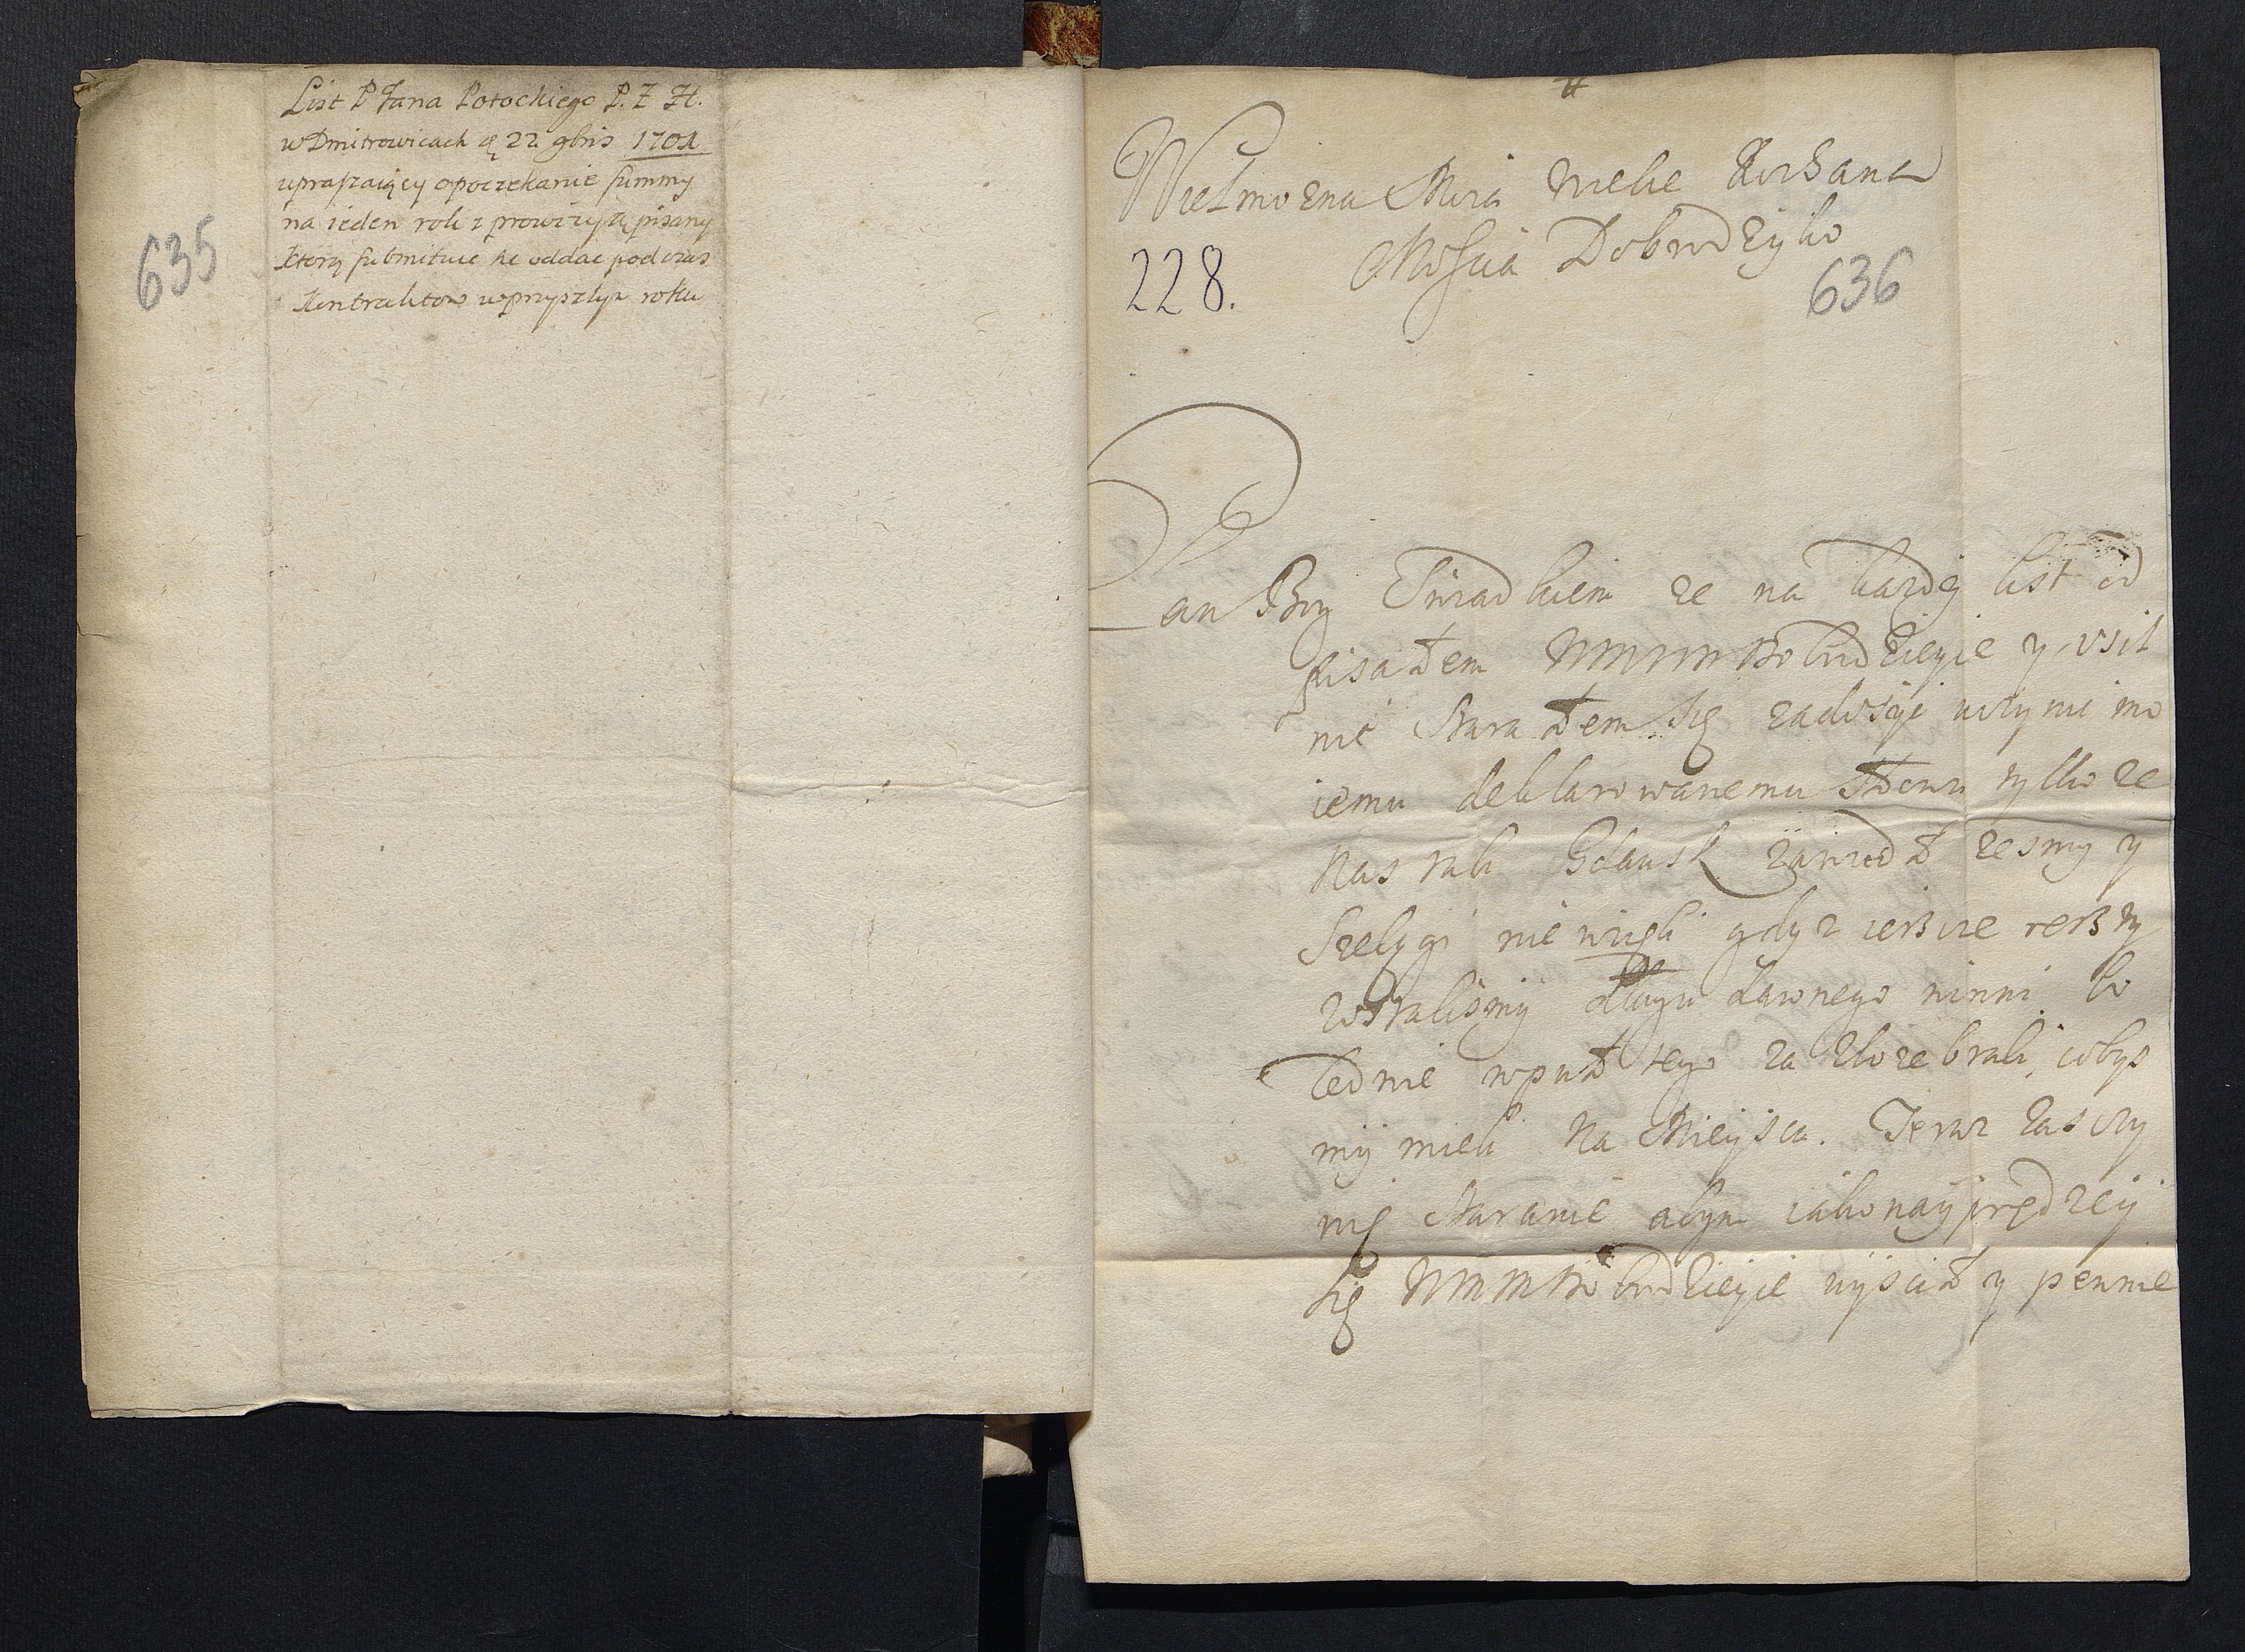 List P Jana Potockiego P. Z H.
w Dmitrowicach d. 22 9bris 1701
upraszaiący o poczekanie summy
na ieden rok z prowizyią pisany
Ktorą submituie się oddac podczas
Kontraktow w przyszłym roku
635
Wielmozna Mcia wielce
Mościa Dobrodzyko
228.
636
Pan Bog Swiadkiem ze na kazdy list od
pisałem WMMM Dobrodzieyce y vsil
nie Starałem się zadosyc uczynic mo
iemu deklarowanemu Słowu tylko ze
Nas tak Gdansk zawiodł zesmy y
Szelęga nie wzieli gdyz ieszcze reszty
zostalismy długu dawnego winni
ledwie wpuł tego za zboze brali cobys
my mieli Na Mieyscu. Teraz zas czy
nię staranie abym iako nayprędzey
się WMMM Dobrodzieyce uyscił y pewnie